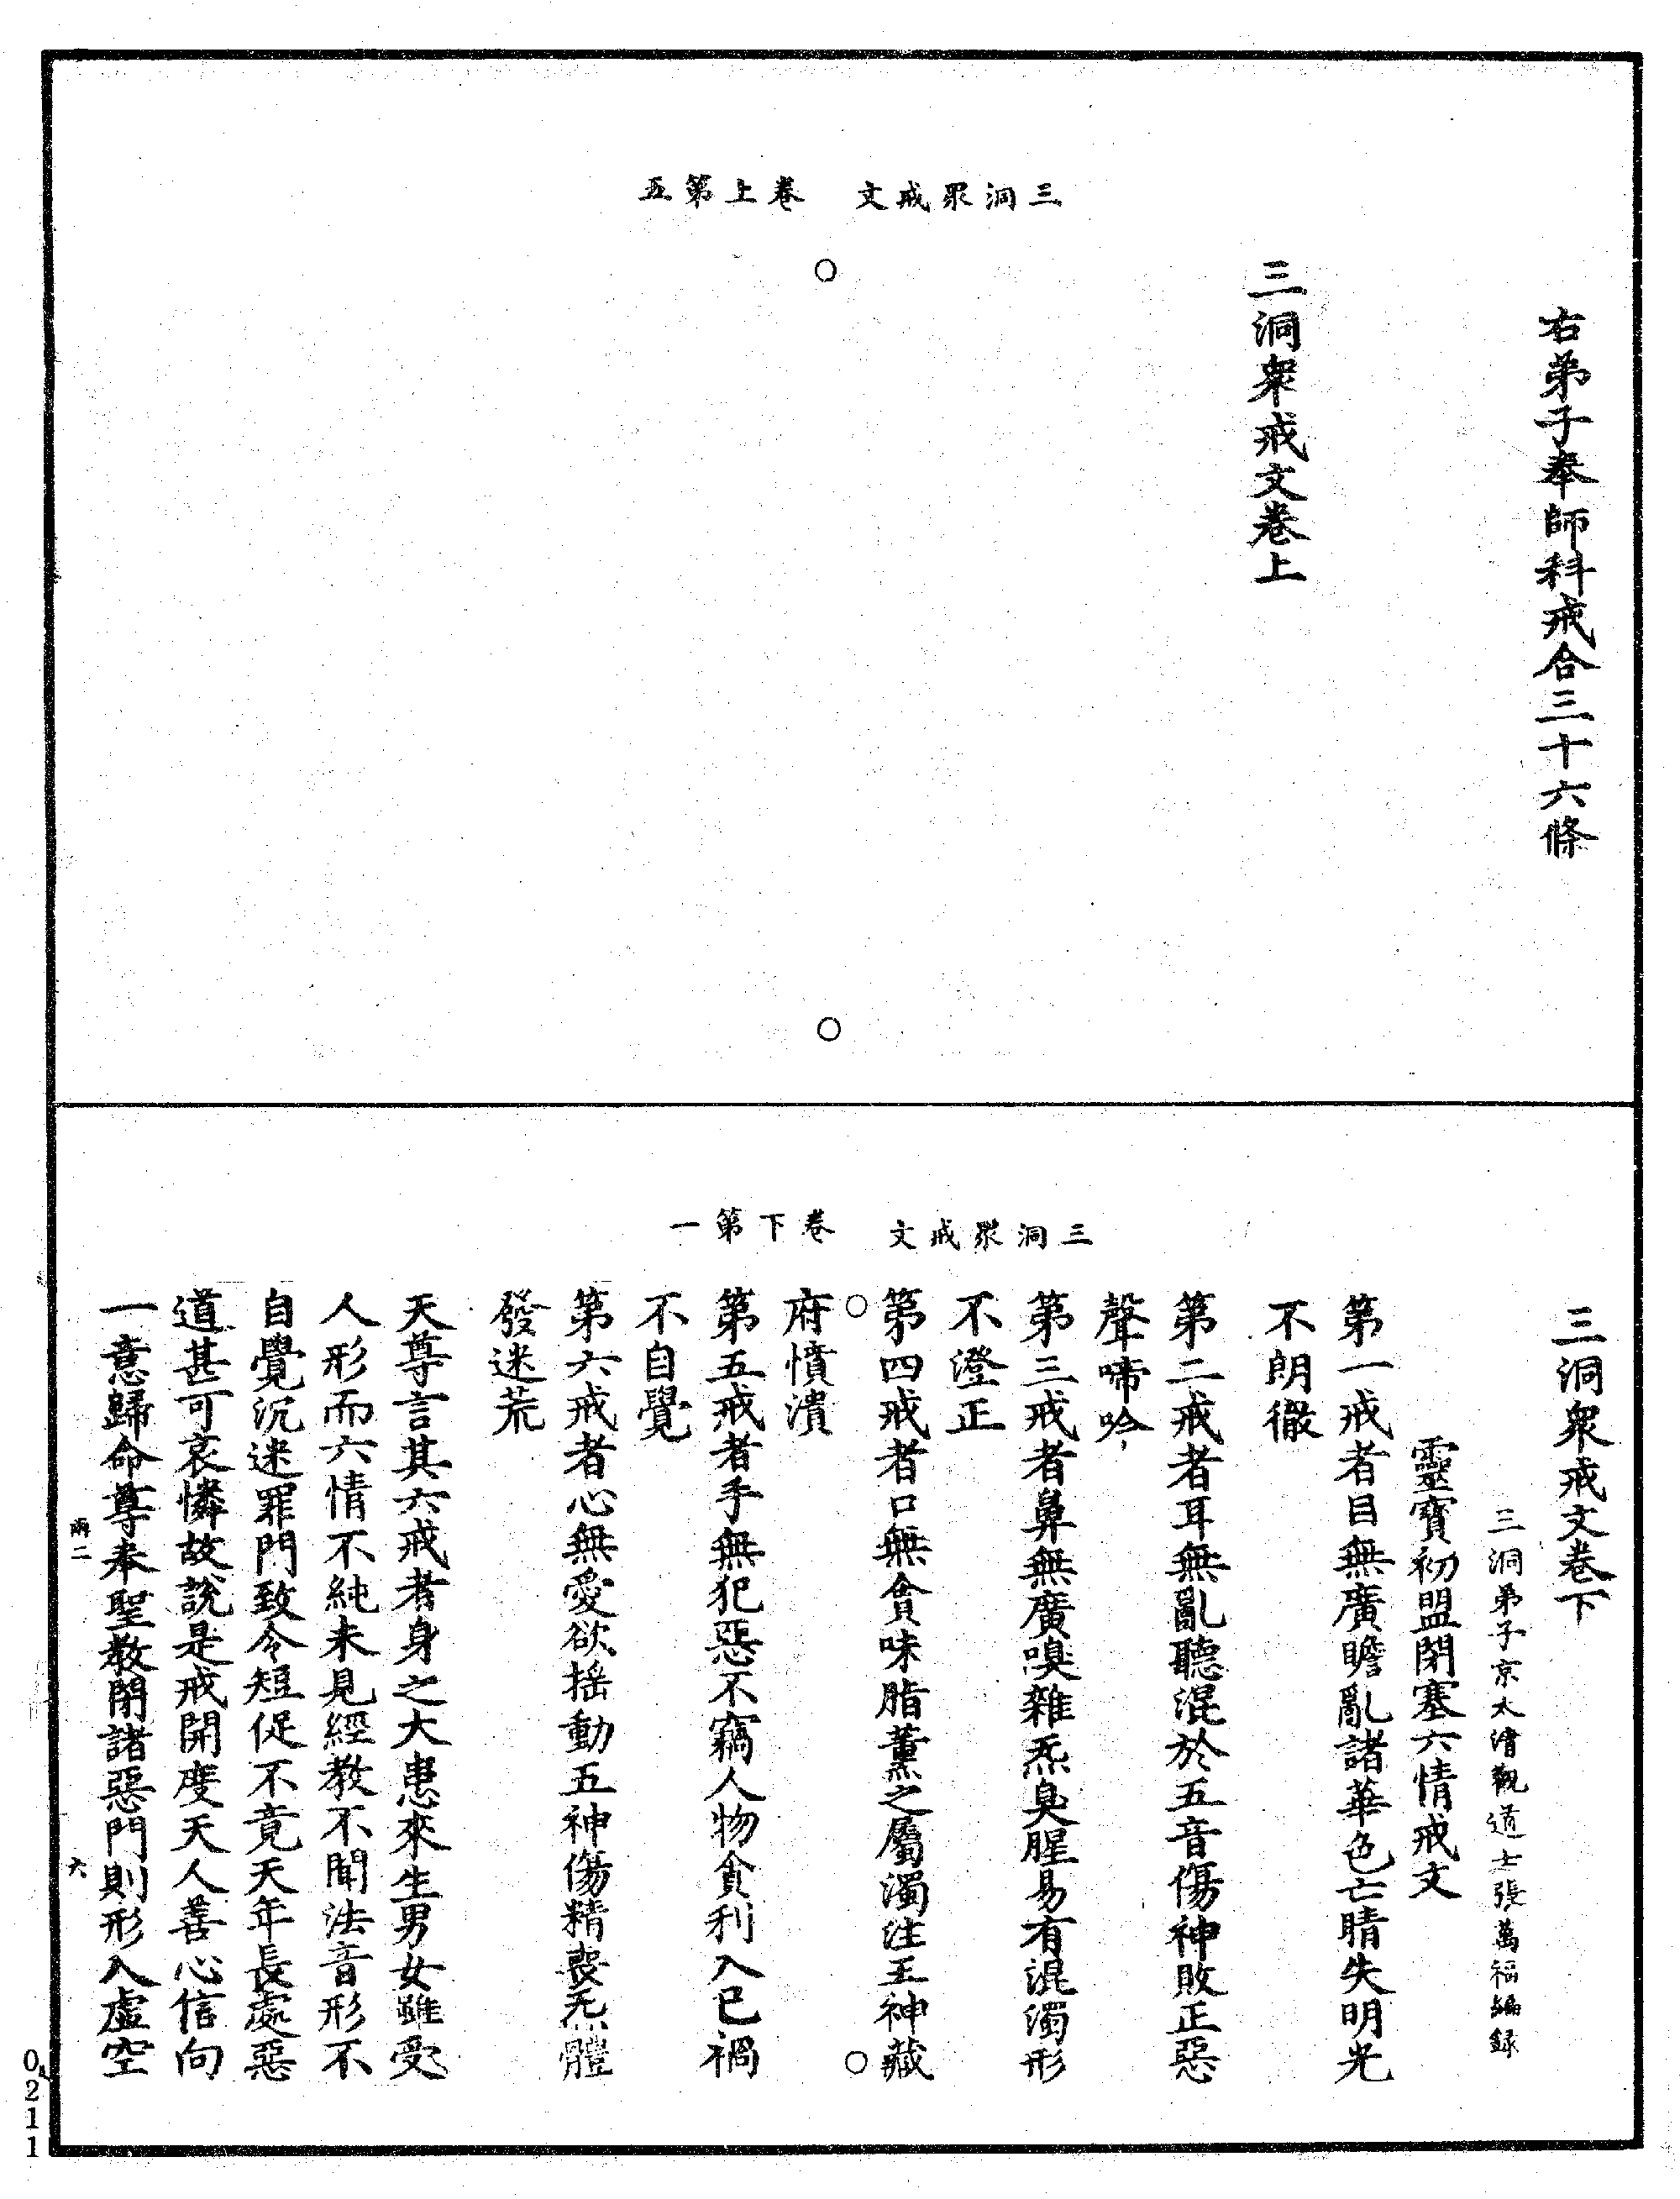 三洞眾戒文　卷上第五
右弟子奉師科戒合三十六條
三洞衆戒文卷上
三洞眾戒文　卷下第一
三洞衆戒文卷下
三洞弟子京太清觀道士張萬福編録
靈寶初盟閉塞六情戒文
第一戒者目無廣瞻亂諸華色亡睛失明光
不朗徹
第二戒者耳無亂聽混於五音傷神敗正惡
聲啼吟
第三戒者鼻無廣嗅雜炁臭腥易有混濁形
不澄正
第四戒者口無貪味脂薰之屬濁注王神藏
府憤潰
第五戒者手無犯惡不竊人物貪利入己禍
不自覺
第六戒者心無愛欲摇動五神傷精喪炁體
發迷荒
天尊言其六戒者身之大患來生男女雖受
人形而六情不純未見經教不聞法音形不
自覺沉迷罪門致令短促不竟天年長處惡
道甚可哀憐故說是戒開度天人善心信向
一意歸命尊奉聖教閉諸惡門則形入虛空
兩二　六
0211